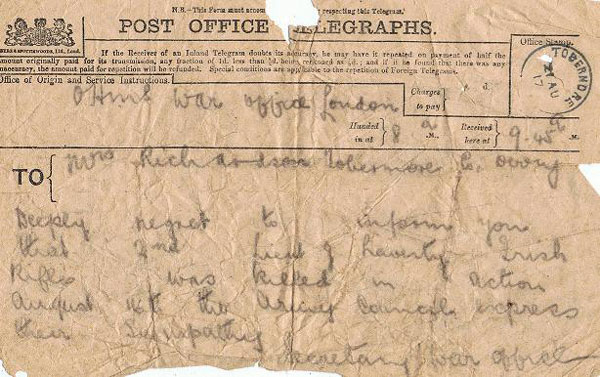 N.B.—This Form must accom respecting this Telegram.
POST OFFICE TELEGRAPHS.
If the Receiver of an Inland Telegram doubts its accuracy, he may have it repeated on payment of half the
amount originally paid for its transmission, any fraction of 1d. less than ½d. being reckoned as ½d.; and if it be found that there was any
inaccuracy, the amount paid for repetition will be refunded. Special conditions are applicable to the repetition of Foreign Telegrams.
Office Stamp.
TOBERMORE
21 AU
17
Office of Origin and Service Instructions.
OHMS War Office London
Charges to pay
d.
Handed in at
8
M.,
Received here at
9.45
M.
TO
Mrs Richardson Tobermore Co. Derry
Deeply regret to inform you
that 2nd Lieut J Irish
Rifles was killed in action
August the Army Council express
their sympathy
Secretary War Office